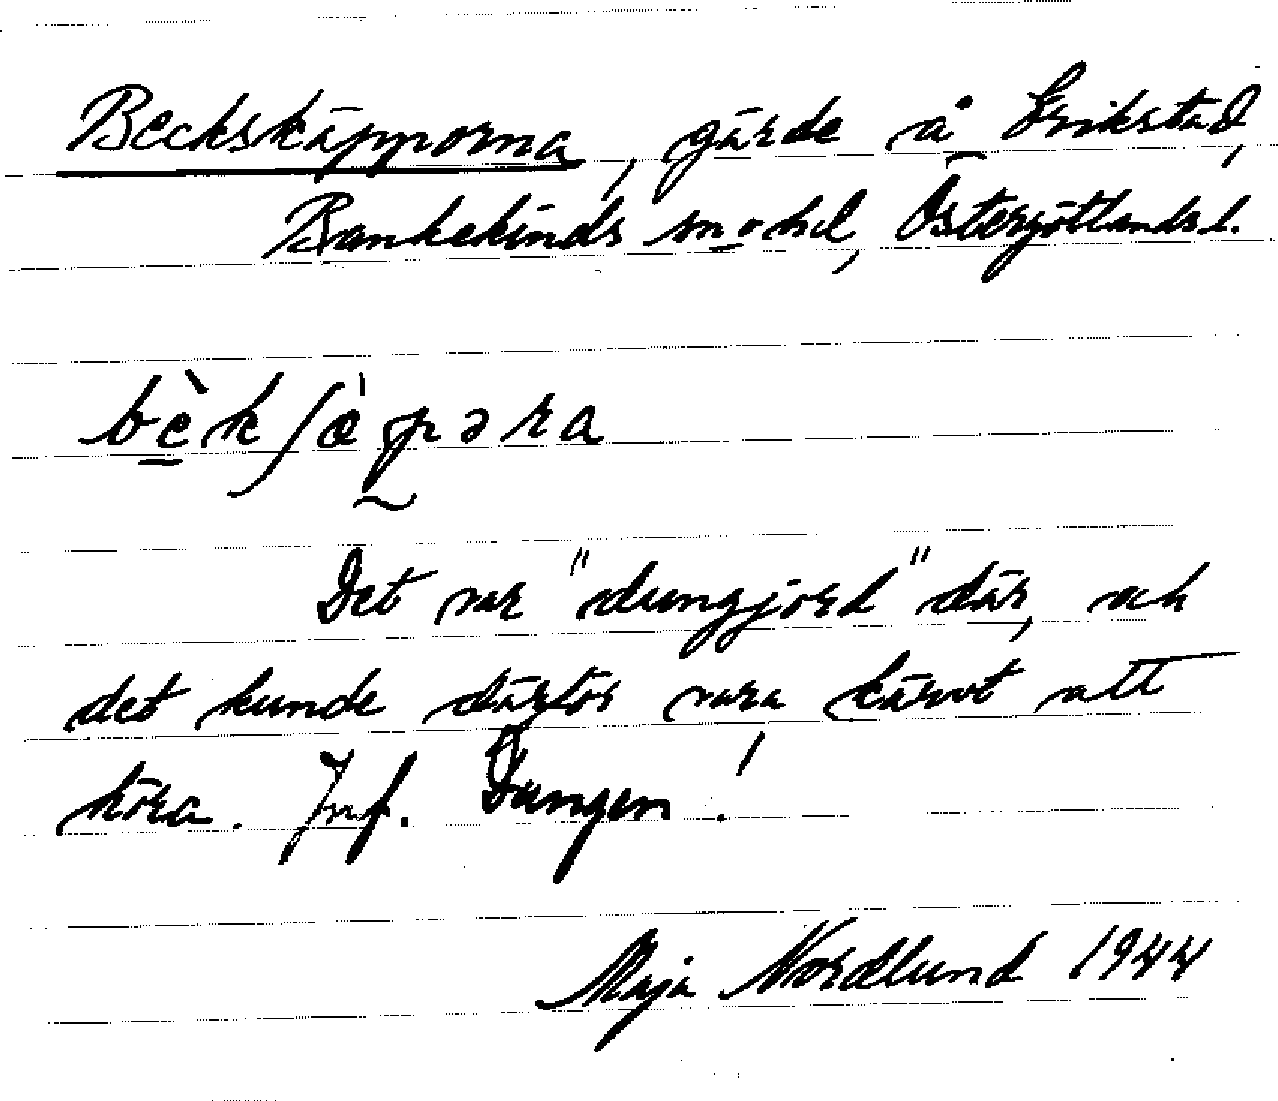 Beckskäpporna, gärde å Erikstad,
Bankekinds sn o hd, Östergötlands l.
bèkʃæ̀pəra
Det var "dungjord" där, och
det kunde därför vara kärvt att
köra. Jmf. Dungen!
Maja Nordlund 1944